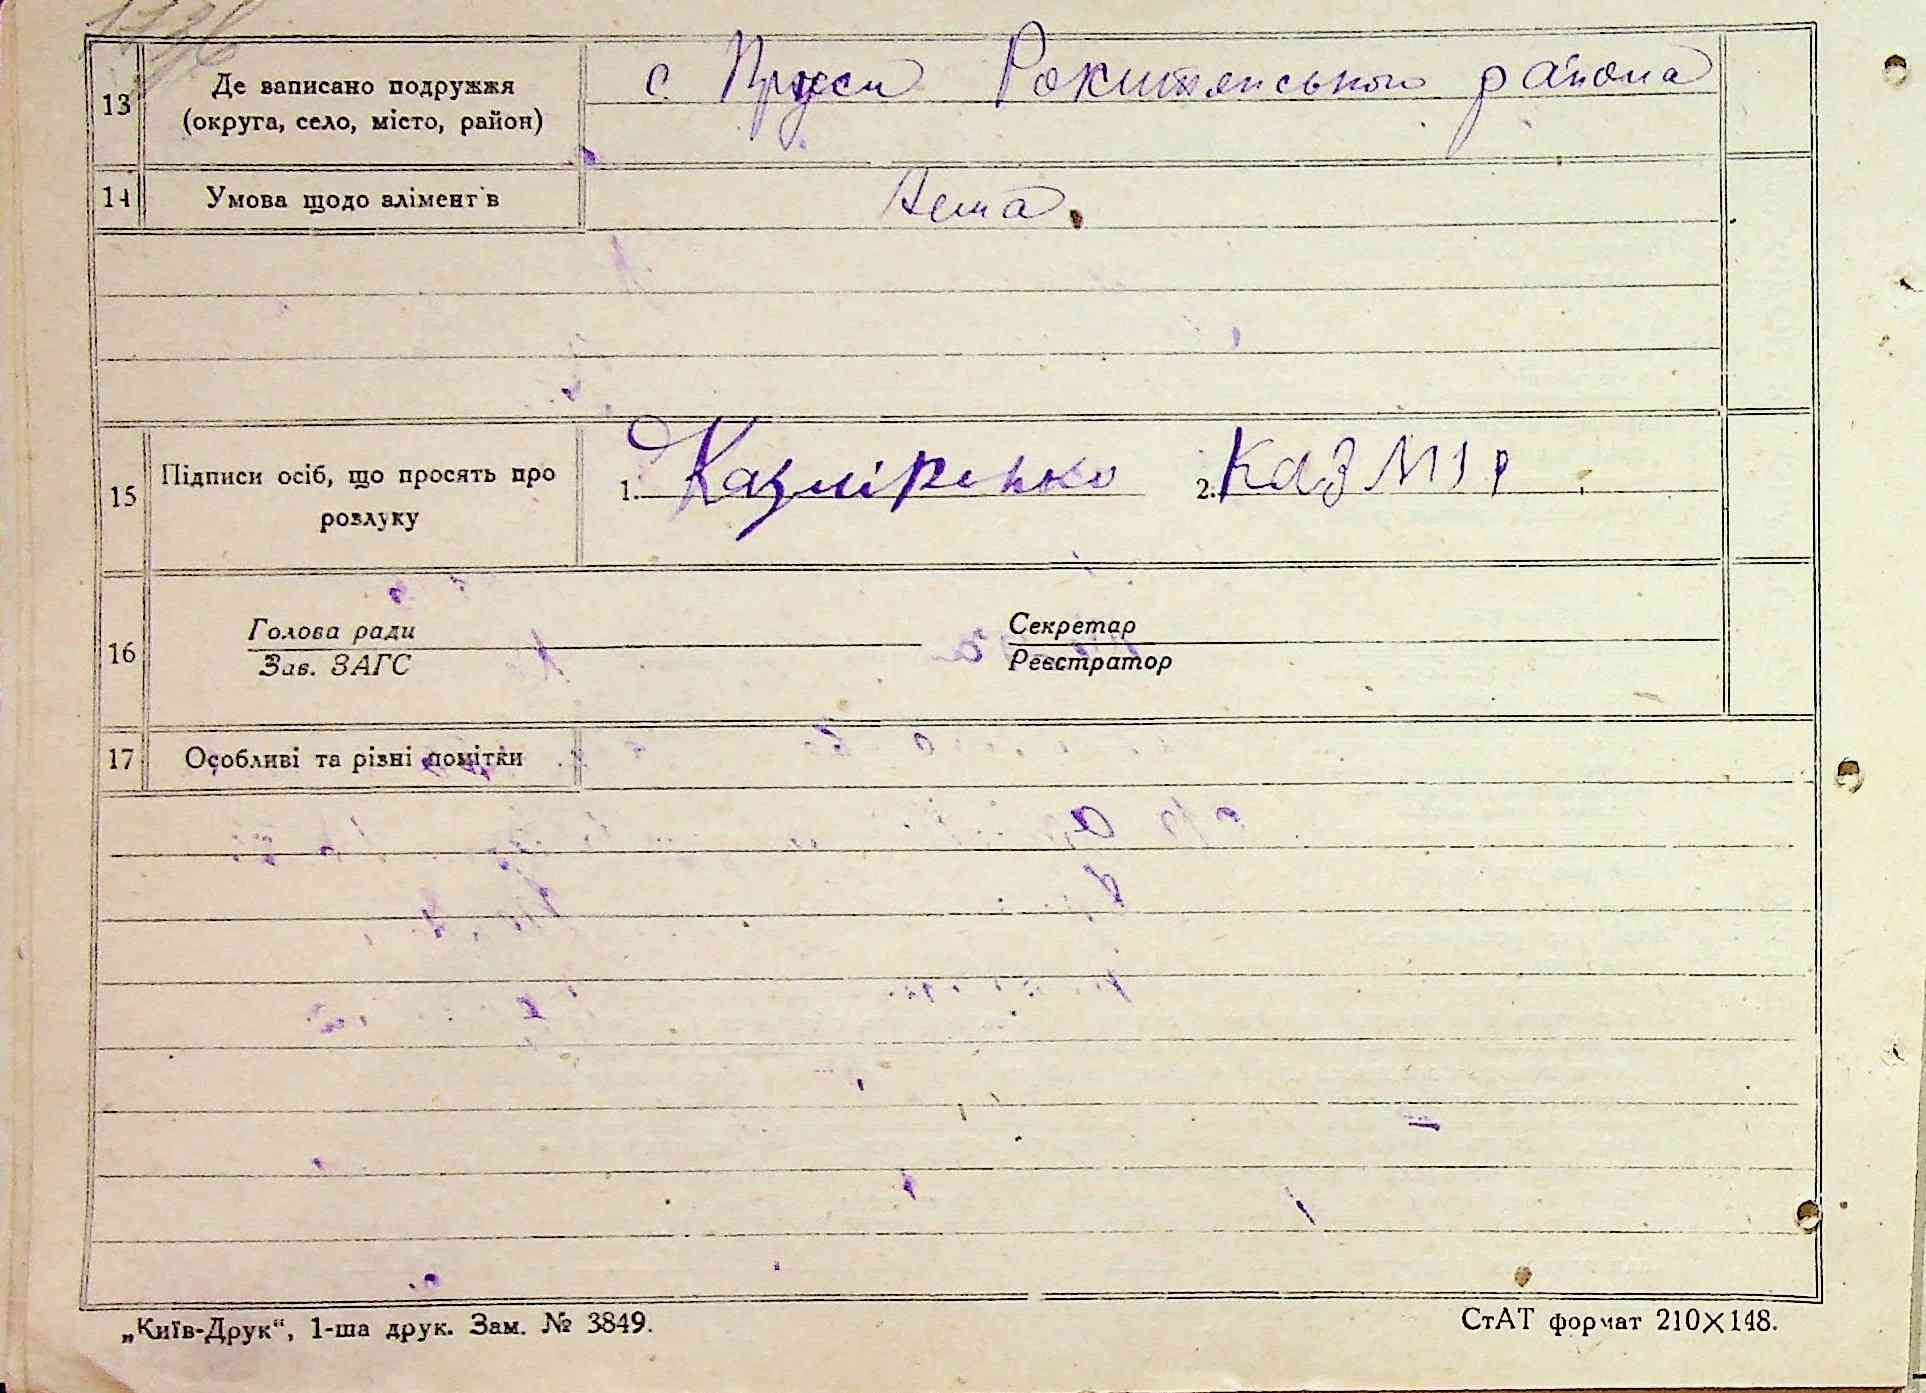 13 Де записано подружжя
(округа, село, місто, район)
с Пруси Рокитянського района
14 Умова щодо алімент в
Нема.
15 Підписи осіб, що просять про
розлуку
1. Казміренко 2. КАЗМІР
16 Голова ради
Зав. ЗАГС
Секретар
Реєстратор
17 Особливі та різні помітки
„Київ-Друк“, 1-ша друк. Зам. № 3849.
СтАТ формат 210×148.